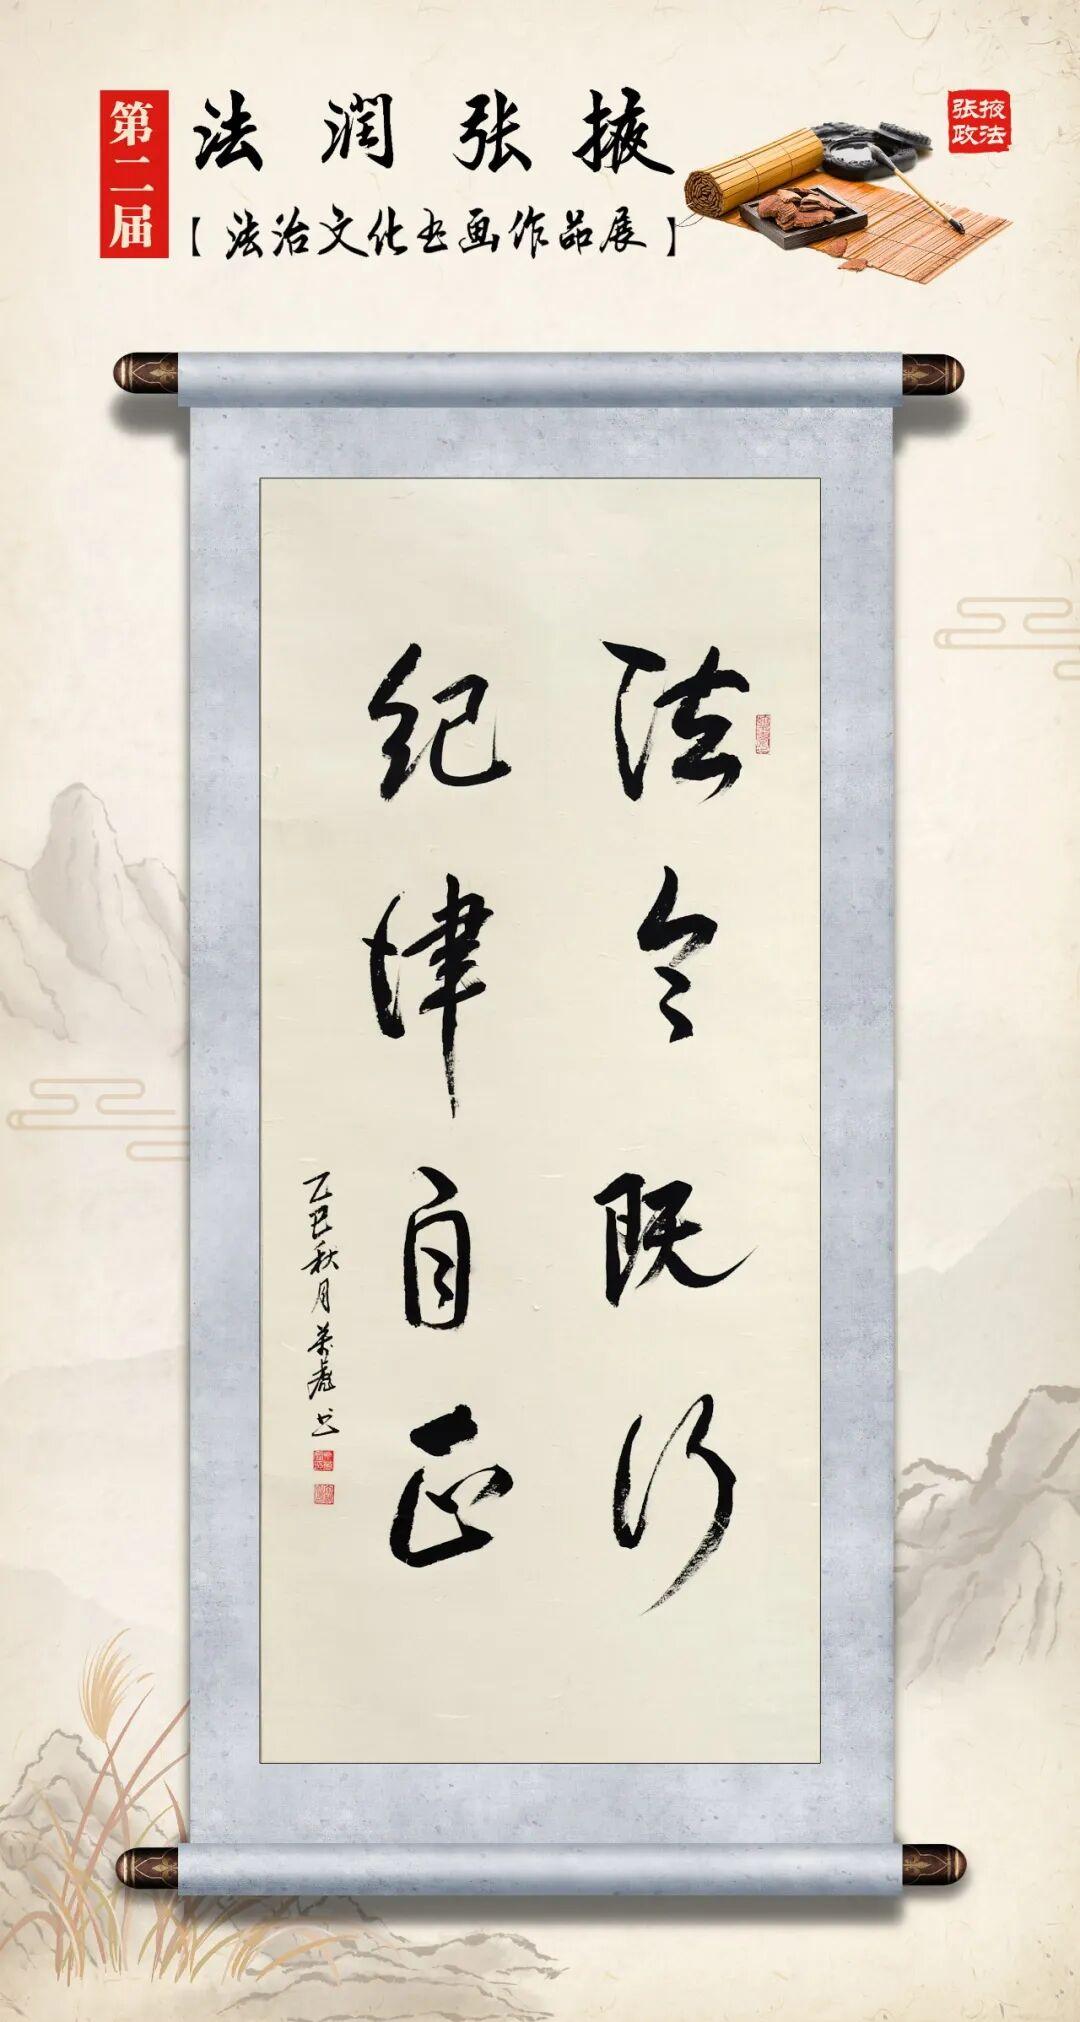 第二届
法润张掖
【法治文化书画作品展】
张掖政法
法令既行
纪律自正
乙巳秋月荣彪书